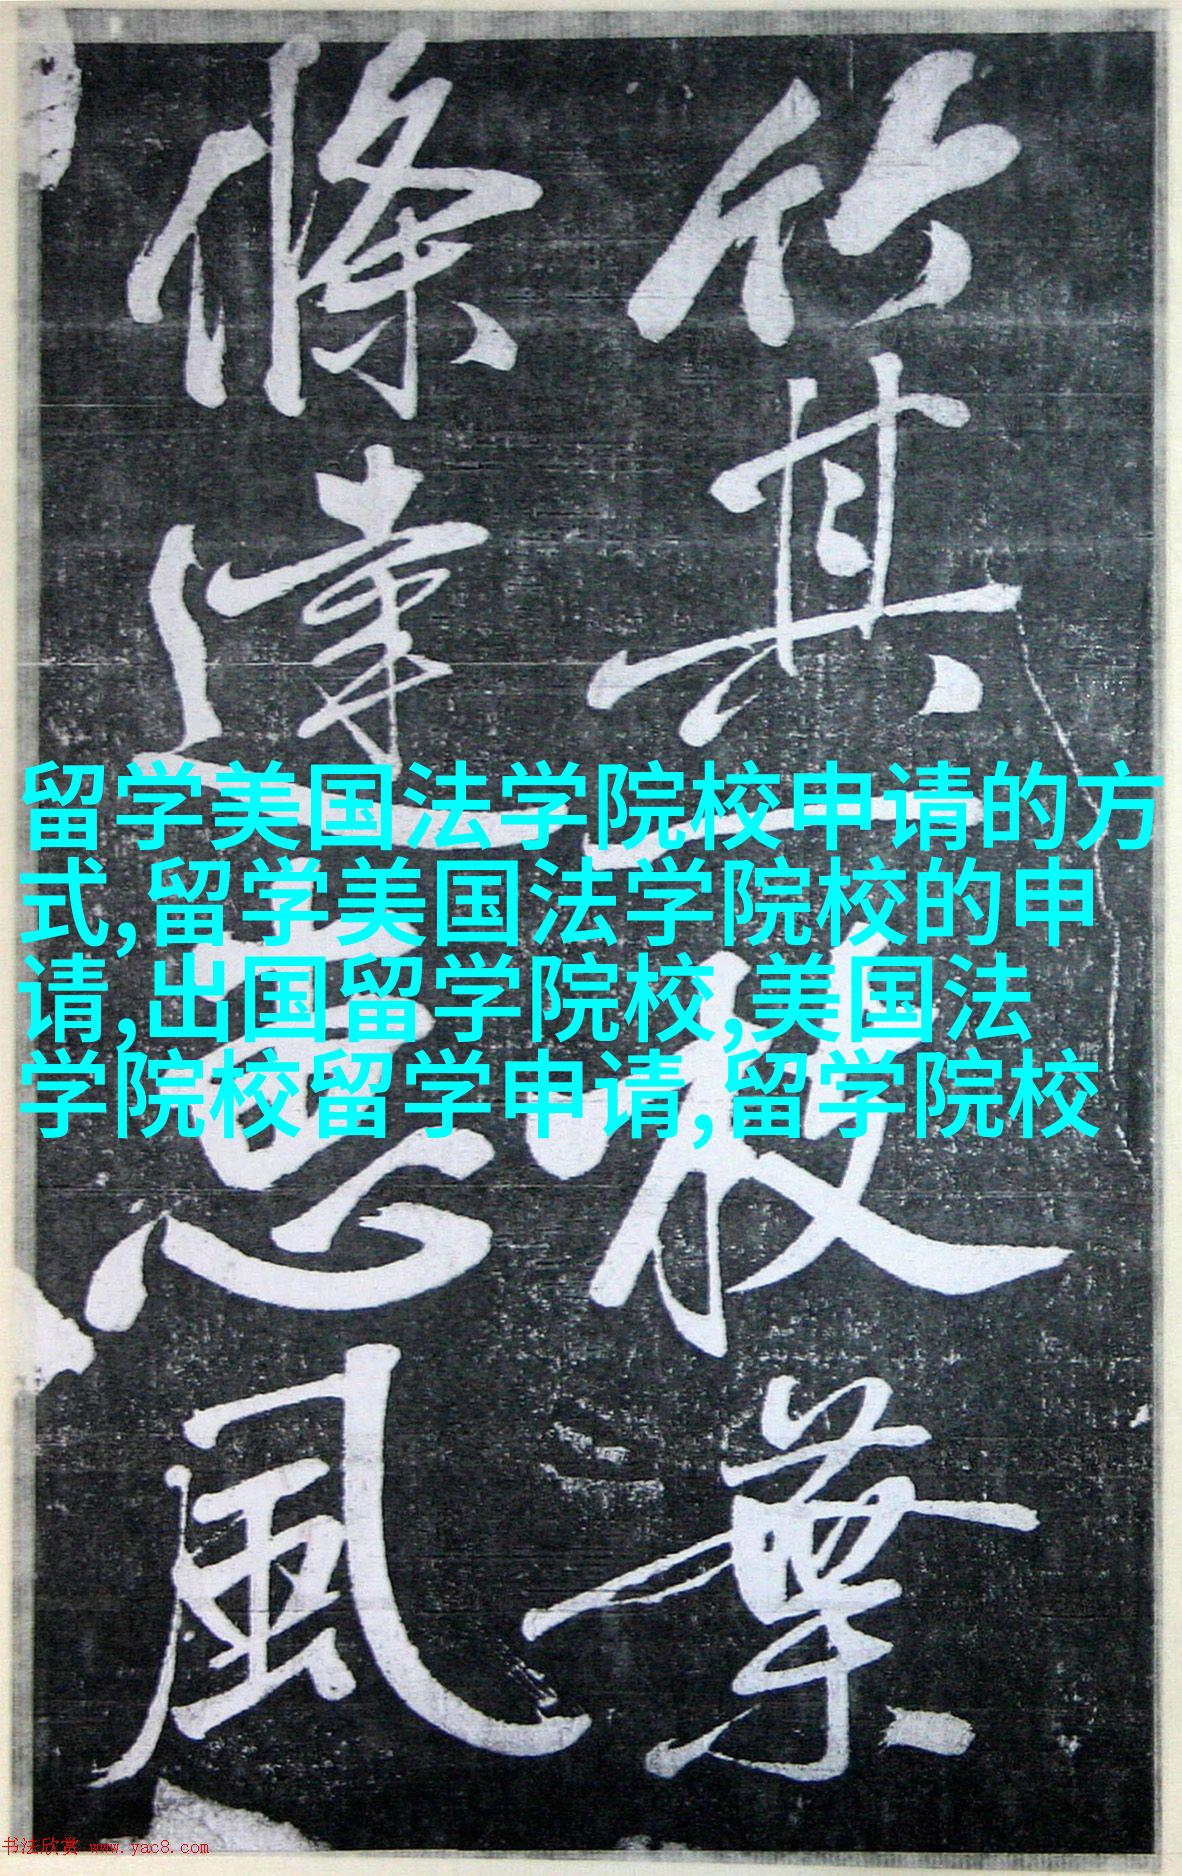 竹其一枝葉
條達惠風
留学美国法学院校申请的方
式,留学美国法学院校的申
请,出国留学院校,美国法
学院校留学申请,留学院校
书法欣赏 www.yac8.com